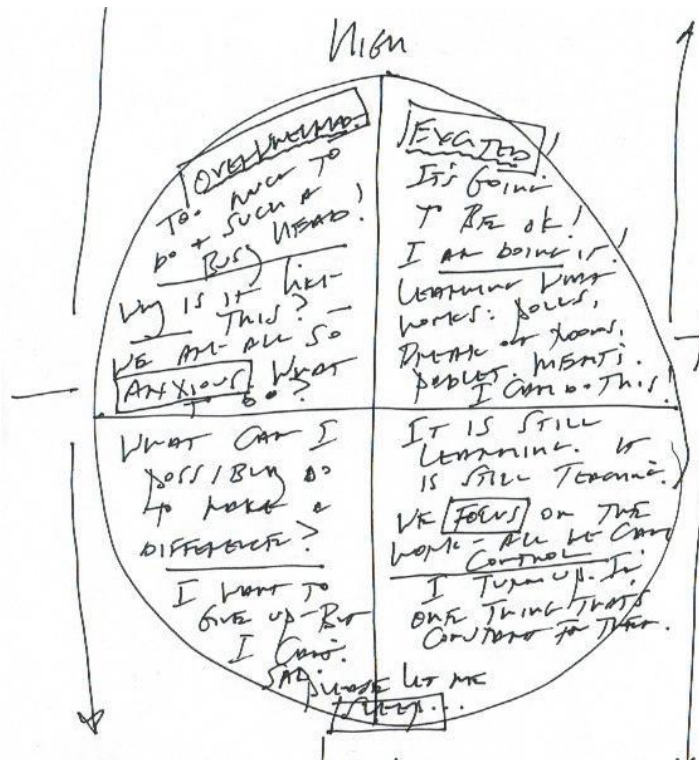 HIGH
OVERWHELMED!
TOO MUCH TO
DO + SUCH A
BUSY HEAD!
WHY IS IT LIKE
THIS? –
WE ARE ALL SO
ANXIOUS. WHAT
TO DO?
EXCITED!
IT'S GOING
TO BE OK!
I AM DOING IT!
LEARNING WHAT
WORKS: POLLS,
BREAK OUT ROOMS,
PADLET. MENTI.
I CAN DO THIS!
WHAT CAN I
POSSIBLY DO
TO MAKE A
DIFFERENCE?
I WANT TO
GIVE UP – BUT
I CAN'T.
SAD.
PLEASE LET ME
SLEEP...
IT IS STILL
LEARNING. IT
IS STILL TEACHING.
WE FOCUS ON THE
WORK – ALL WE CAN
CONTROL
I TURN UP. I'M
ONE THING THAT'S
CONSTANT FOR THEM.